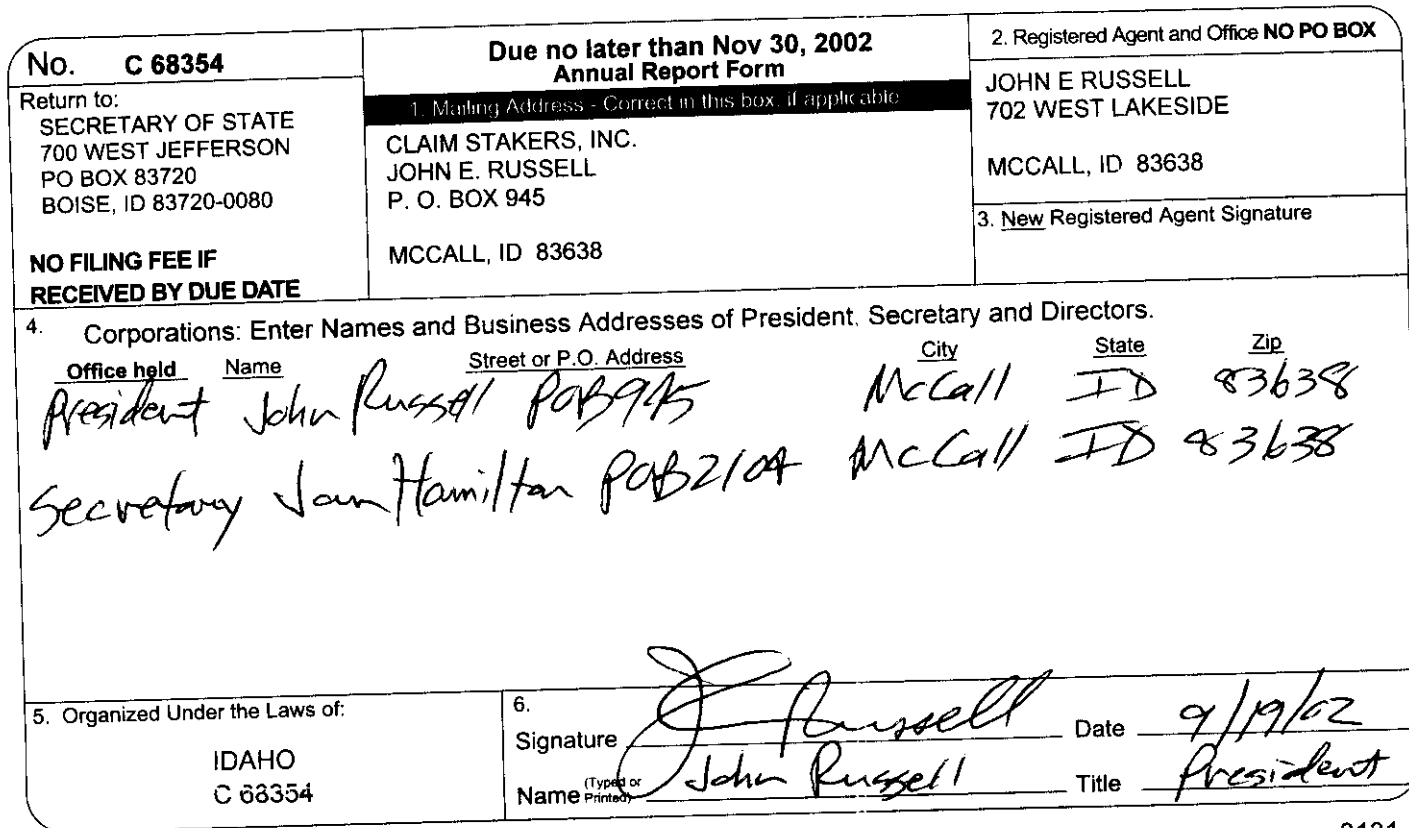 No. C 68354
Return to:
SECRETARY OF STATE
700 WEST JEFFERSON
PO BOX 83720
BOISE, ID 83720-0080
NO FILING FEE IF
RECEIVED BY DUE DATE
Due no later than Nov 30, 2002
Annual Report Form
1. Mailing Address - Correct in this box, if applicable
CLAIM STAKERS, INC.
JOHN E. RUSSELL
P. O. BOX 945
MCCALL, ID 83638
2. Registered Agent and Office NO PO BOX
JOHN E RUSSELL
702 WEST LAKESIDE
MCCALL, ID 83638
3. New Registered Agent Signature
4. Corporations: Enter Names and Business Addresses of President, Secretary and Directors.
Office held Name Street or P.O. Address City State Zip
President John Russell POB945 McCall ID 83638
Secretary Jan Hamilton POB2104 McCall ID 83638
5. Organized Under the Laws of:
IDAHO
C 68354
6.
Signature J Russell Date 9/19/02
Name (Typed or Printed) John Russell Title President